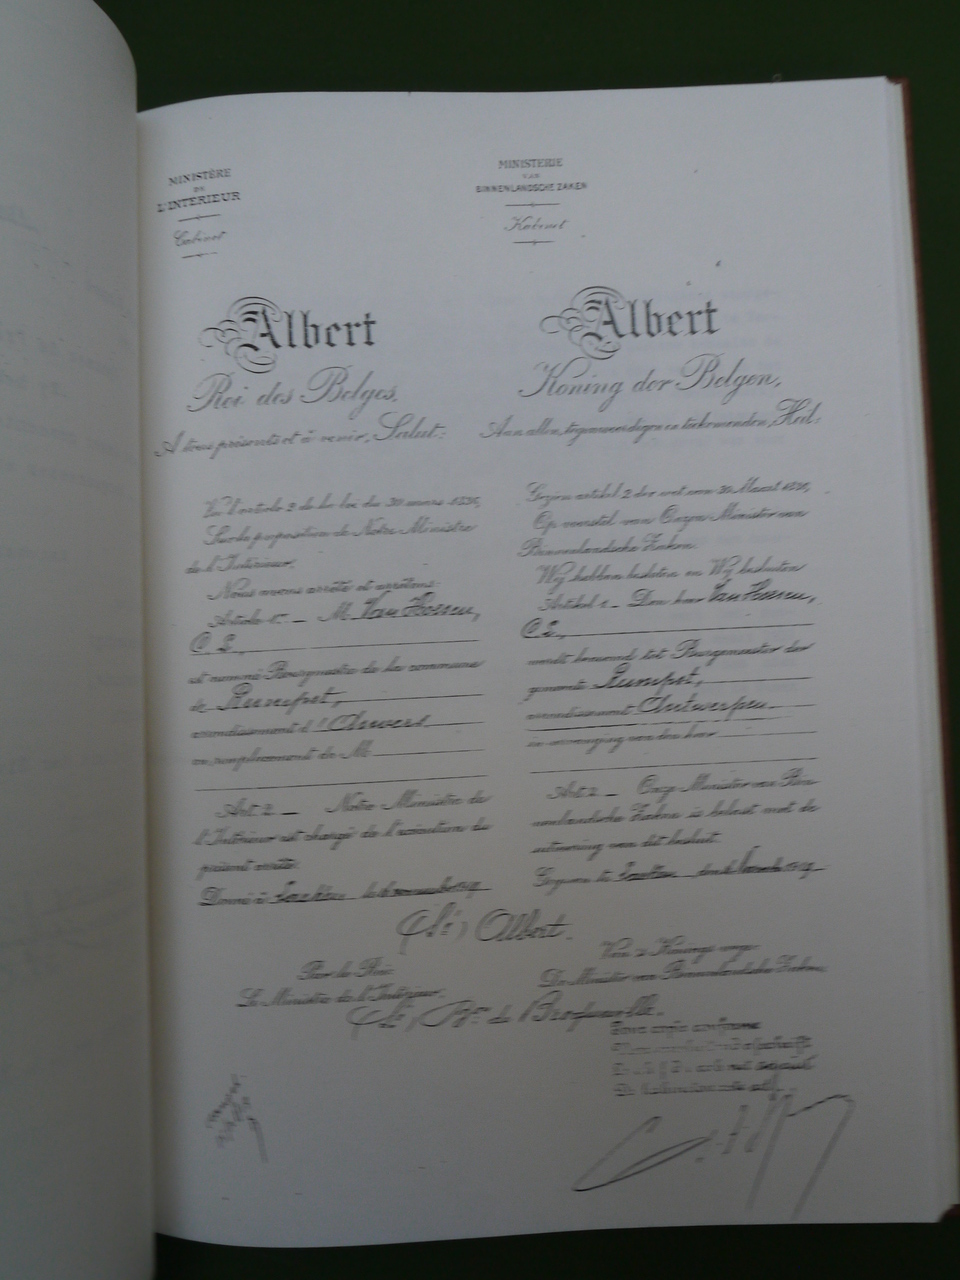 MINISTÈRE
DE
L'INTÉRIEUR
Cabinet
Albert
Roi des Belges,
A tous présents et à venir, Salut:
Vu l'article 2 de la loi du 30 mars 1836,
Sur la proposition de Notre Ministre
de l'Intérieur,
Nous avons arrêté et arrêtons:
Article 1er — M. Van Hoesen,
C. L.
est nommé Bourgmestre de la commune
de Rumpst,
arrondissement d'Anvers
en remplacement de M.
Art. 2 — Notre Ministre de
l'Intérieur est chargé de l'exécution du
présent arrêté.
Donné à Laeken, le novembre
MINISTERIE
VAN
BINNENLANDSCHE ZAKEN
Kabinet
Albert
Koning der Belgen,
Aan allen, tegenwoordigen en toekomenden, Heil:
Gezien artikel 2 der wet van 30 Maart 1836,
Op voorstel van Onzen Minister van
Binnenlandsche Zaken
Wij hebben besloten en Wij besluiten
Artikel 1 — Den heer Van Hoesen,
C. L.
wordt benoemd tot Burgemeester der
gemeente Rumpst,
arrondissement Antwerpen
in vervanging van den heer
Art. 2 — Onze Minister van Bin-
nenlandsche Zaken is belast met de
uitvoering van dit besluit.
Gegeven te Laeken, den
(Sé) Albert.
Par le Roi:
Le Ministre de l'Intérieur,
Van 's Konings wege:
De Minister van Binnenlandsche Zaken,
(Sé) Bon de Broqueville.
Pour copie conforme